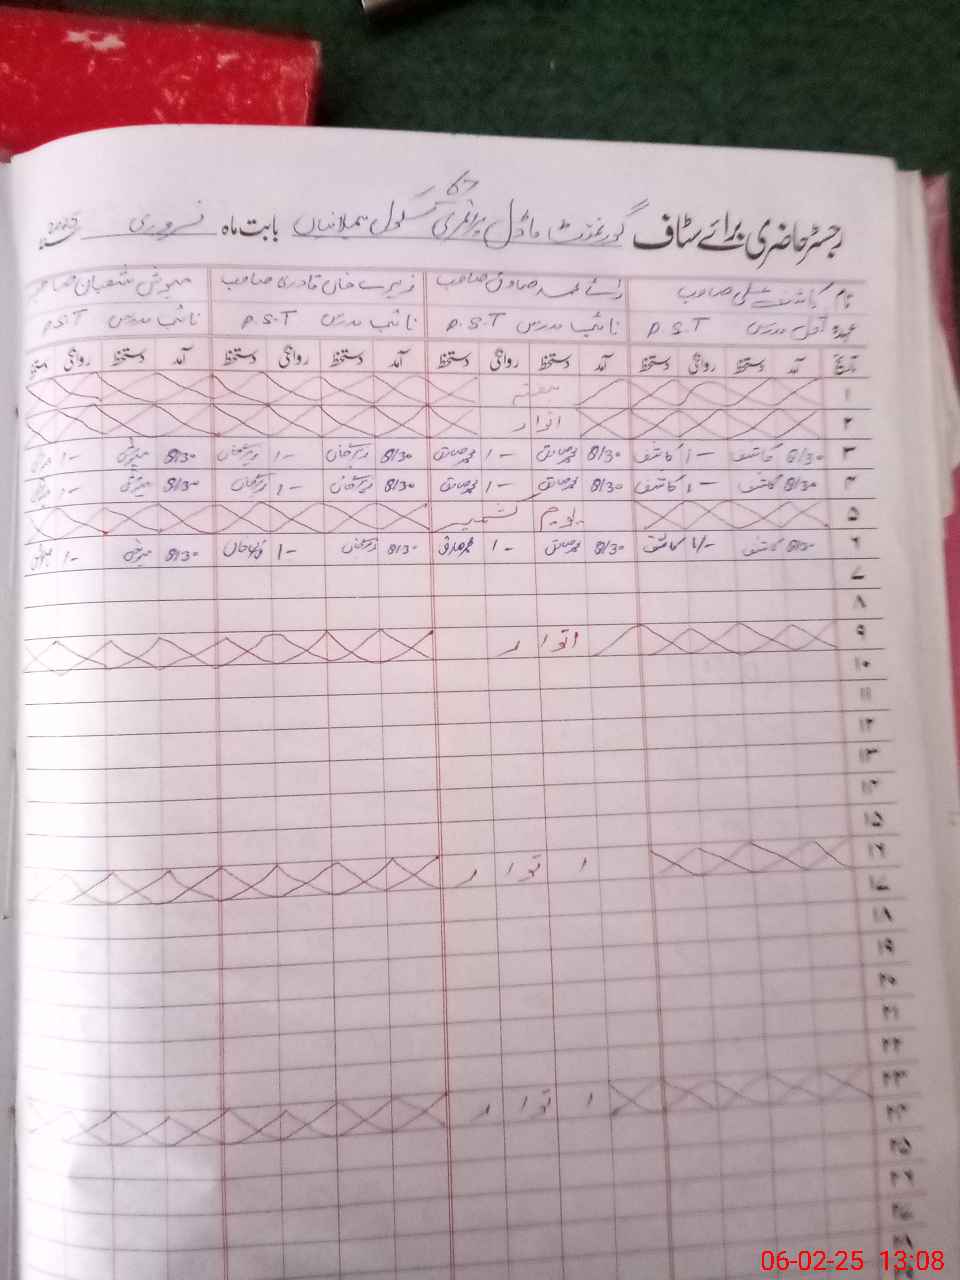 رجسٹر حاضری برائے سٹاف گورنمنٹ ماڈل پرائمری سکول بابت ماہ فروری 2025
نام کاشف علی صاحب رائے محمد صادق صاحب خان قادری صاحب مہوش شعبان صاحبہ
عہدہ اول مدرس P.S.T نائب مدرس P.S.T نائب مدرس P.S.T نائب مدرس P.S.T
تاریخ آمد دستخط روانگی دستخط آمد دستخط روانگی دستخط آمد دستخط روانگی دستخط آمد دستخط روانگی دستخط
۱ ہفتہ
۲ اتوار
۳ 8/30 کاشف 1/- کاشف 8/30 محمد صادق 1/- محمد صادق 8/30 1/- 8/30 مہوش 1/- مہوش
۴ 8/30 کاشف 1/- کاشف 8/30 محمد صادق 1/- محمد صادق 8/30 1/- 8/30 مہوش 1/- مہوش
۵ یوم کشمیر
۶ 8/30 کاشف 1/- کاشف 8/30 محمد صادق 1/- محمد صادق 8/30 1/- 8/30 مہوش 1/- مہوش
۷
۸
۹ اتوار
۱۰
۱۱
۱۲
۱۳
۱۴
۱۵
۱۶ اتوار
۱۷
۱۸
۱۹
۲۰
۲۱
۲۲
۲۳ اتوار
۲۴
۲۵
۲۶
۲۷
۲۸
06-02-25 13:08